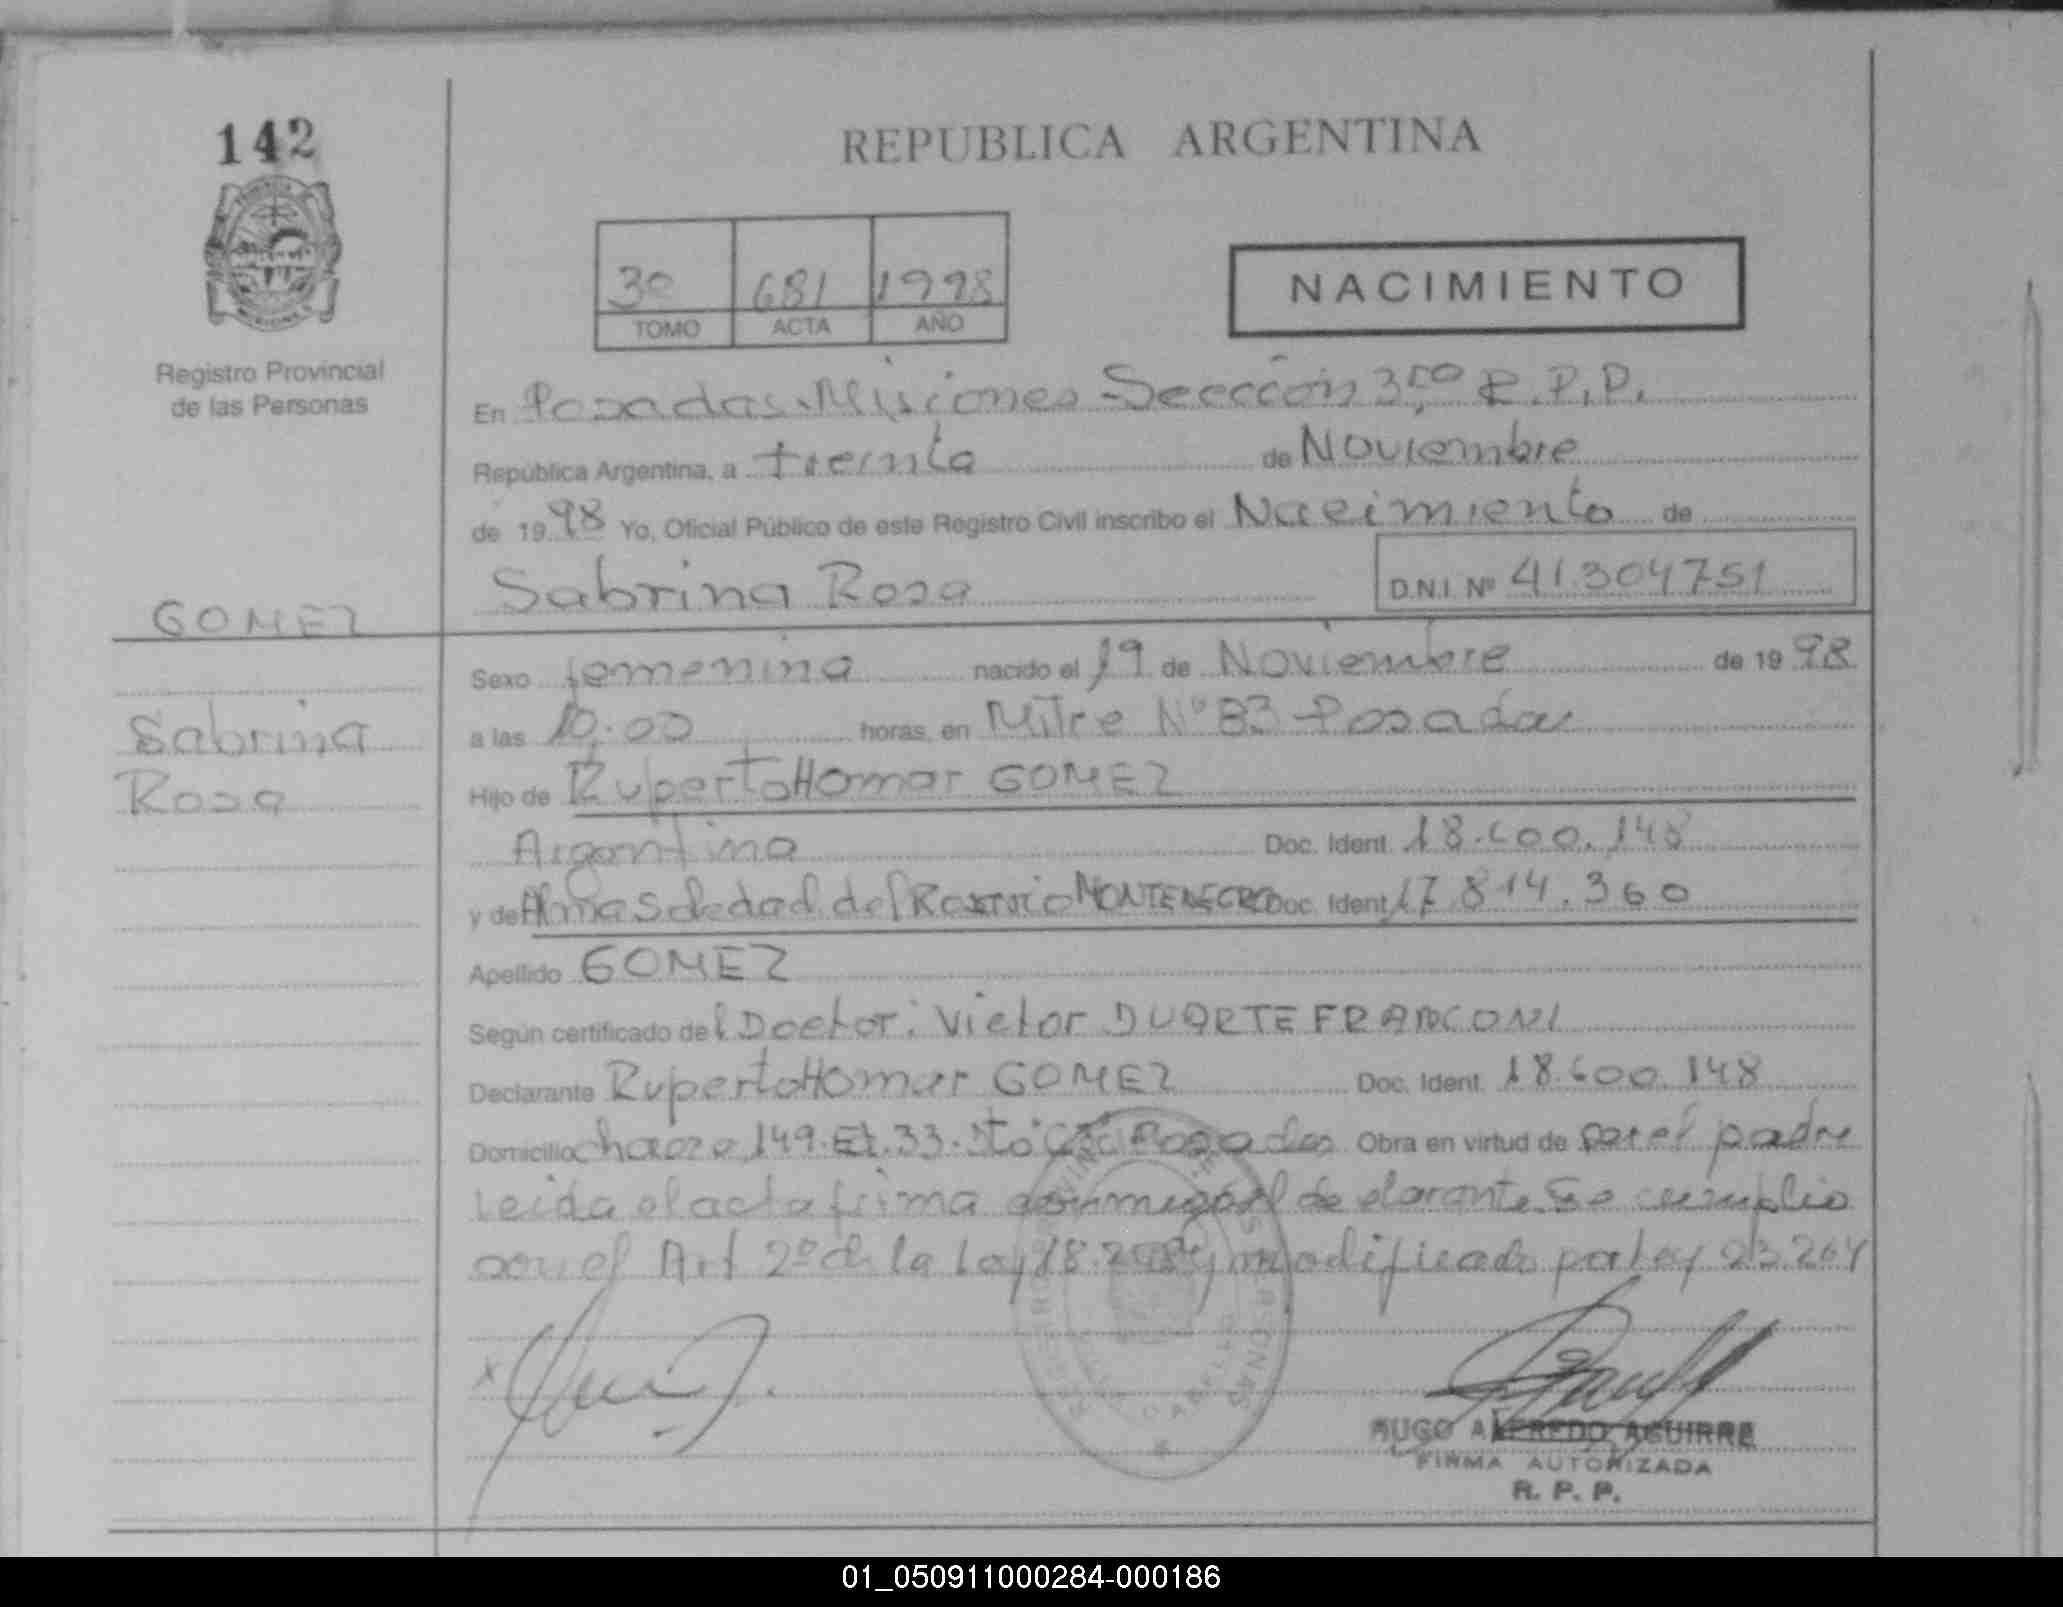 142
REPUBLICA ARGENTINA
3º 681 1998
TOMO ACTA AÑO
NACIMIENTO
Registro Provincial
de las Personas
En Posadas-Misiones-Sección 3ra R.P.P.
República Argentina, a treinta de Noviembre
de 1998 Yo, Oficial Público de este Registro Civil inscribo el Nacimiento de
Sabrina Rosa D.N.I. Nº 41.304751
GOMEZ
Sabrina
Rosa
Sexo femenina nacido el 19 de Noviembre de 1998
a las 10.00 horas, en Mitre Nº 83-Posadas
Hijo de Ruperto Homar GOMEZ
Argentino Doc. Ident. 18.600.148
y de Alma Soledad del Rosario MONTENEGRO Doc. Ident. 17.814.360
Apellido GOMEZ
Según certificado del Doctor: Victor DUARTE FRANCONI
Declarante Ruperto Homar GOMEZ Doc. Ident. 18.600.148
Domicilio chacra 149. Posadas Obra en virtud de ser el padre
Leida el acta firma conmigo el declarante Se cumplio
con el Art 2º de la Ley modificado por Ley 23.264
HUGO ALFREDO AGUIRRE
FIRMA AUTORIZADA
R. P. P.
01_050911000284-000186